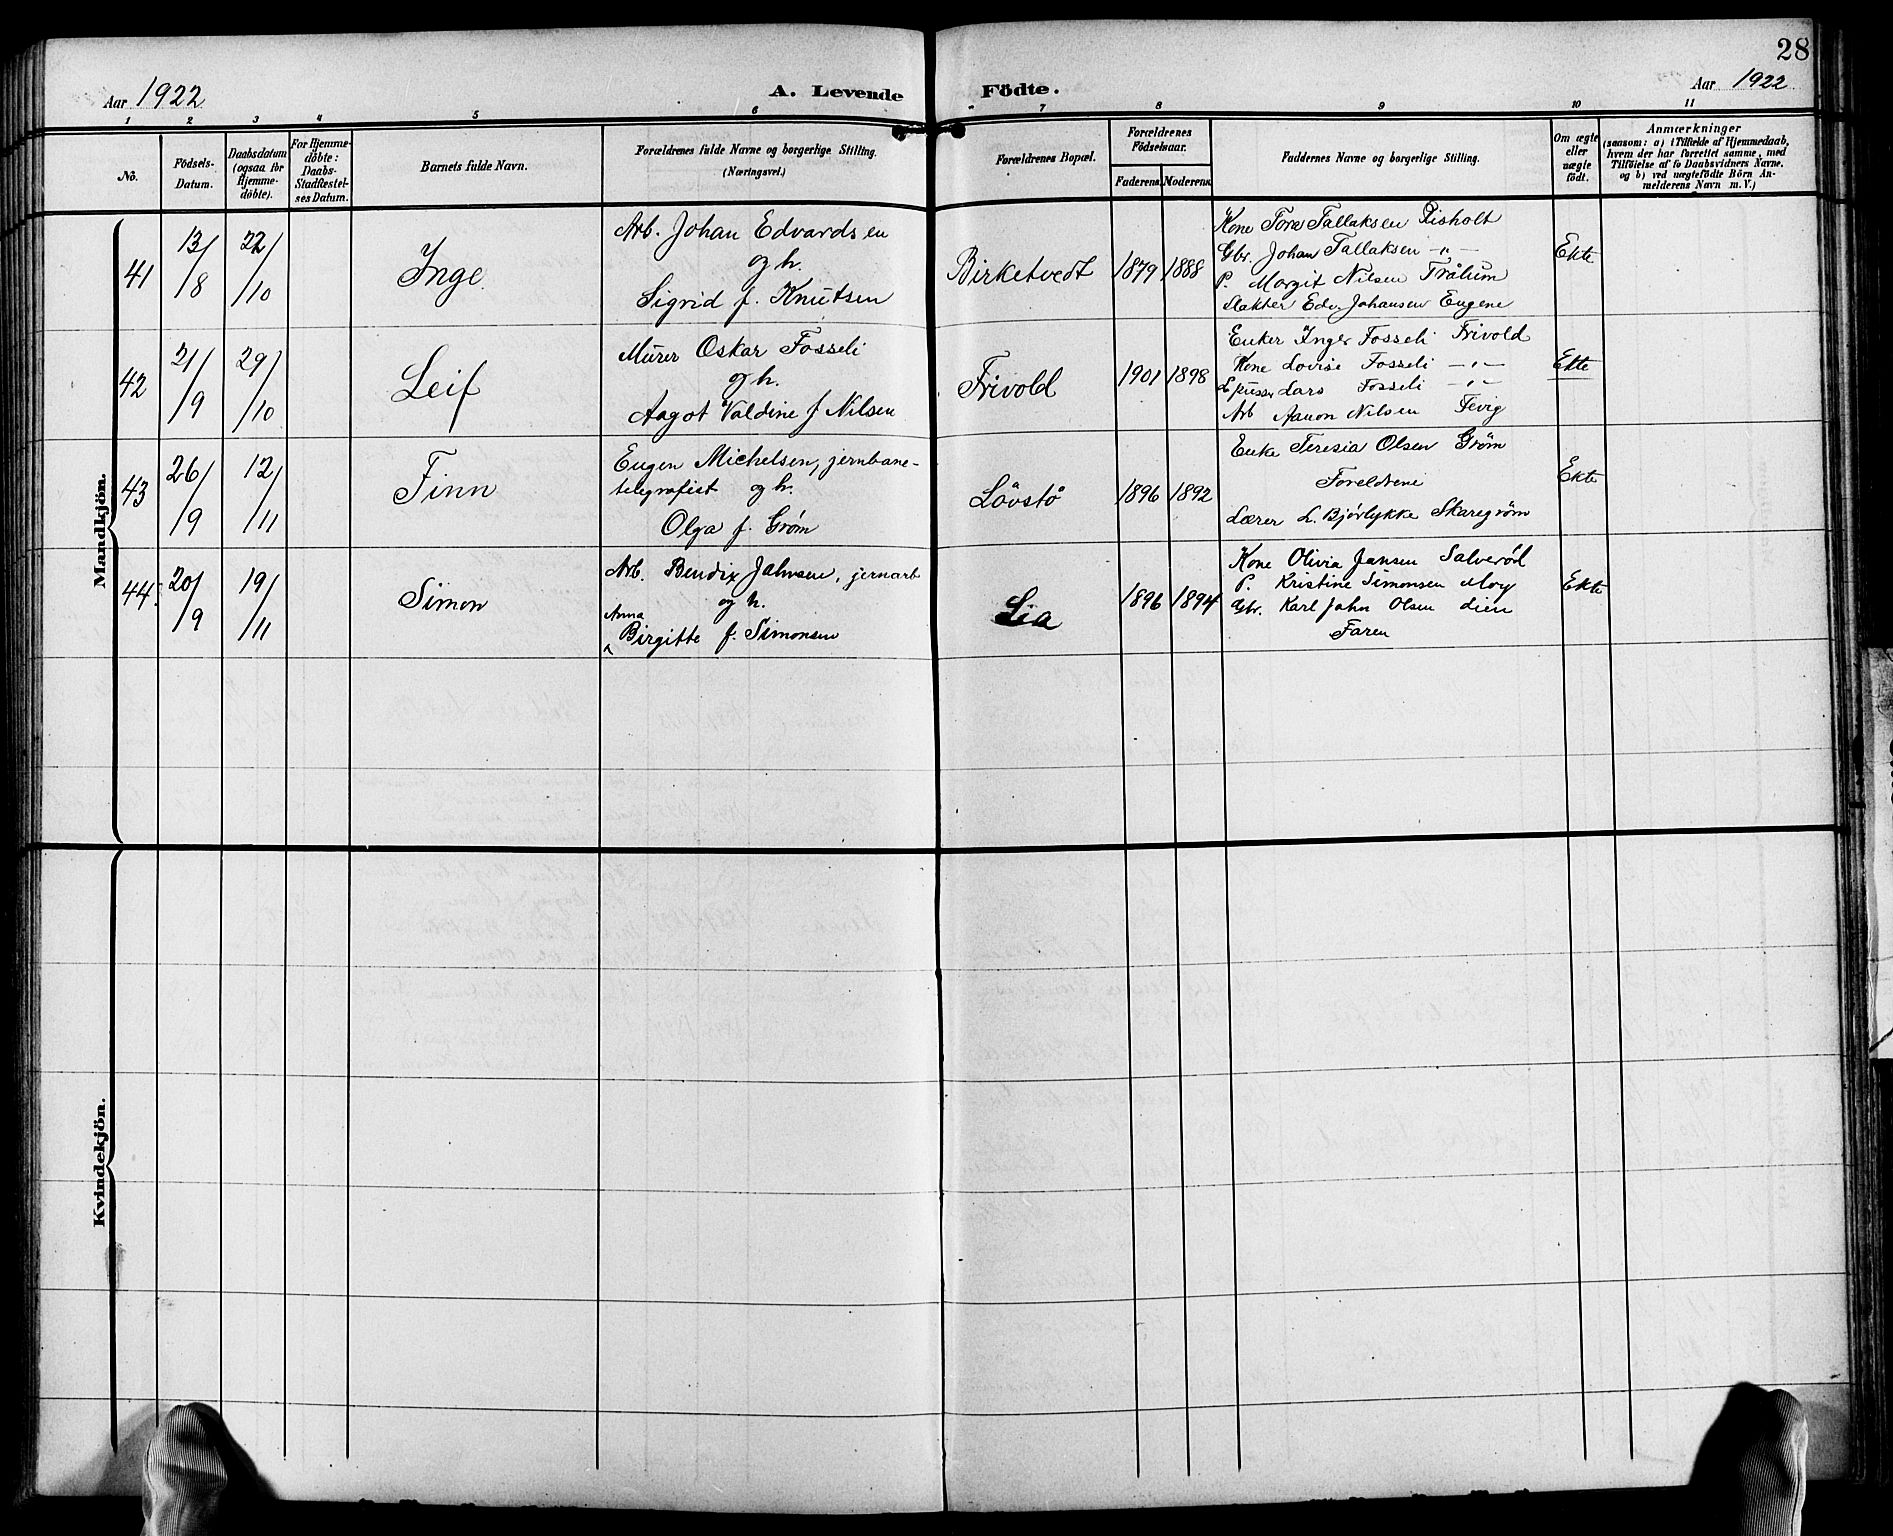 28
Aar 1922
A. Levende
Födte.
Aar 1922
1 2 3 4 5 6 7 8 9 10 11
No.
Födsels-
Datum.
Daabsdatum
(ogsaa for
Hjemme-
döbte).
For Hjemme-
döbte:
Daabs-
Stadfæstel-
ses Datum.
Barnets fulde Navn.
Forældrenes fulde Navne og borgerlige Stilling.
(Næringsvei.)
Forældrenes Bopæl.
Forældrenes
Födselsaar.
Faderens. Moderens.
Faddernes Navne og borgerlige Stilling.
Om ægte
eller
uægte
födt.
Anmærkninger
(saasom: a) i Tilfælde af Hjemmedaab,
hvem der har forrettet samme, med
Tilföielse af to Daabsvidners Navne.
og b) ved uægtefödte Börn An-
melderens Navn m. V.)
Mandkjön.
41
13/8
22/10
Inge
Arb. Johan Edvardsen
og h.
Sigrid f. Knutsen
Birketvedt
1879 1888
Kone Tora Tallaksen Risholt
Gbr. Johan Tallaksen -"-
P. Margit Nilsen Trålum
Slakter Edv. Johansen Eugene
Ekte
42
21/9
29/10
Leif
Murer Oskar Fosseli
og h.
Aagot Valdine f Nilsen
Frivold
1901 1898
Enker Inger Fosseli Frivold
Kone Lovise Fosseli -"-
Lars Fosseli -"-
Arb Aanon Nilsen Fevig
Ekte
43
26/9
12/11
Finn
Eugen Michelsen, jernbane-
telegrafist og h.
Olga f. Grøm
Løvstø
1896 1892
Enke Teresia Olsen Grøm
Foreldrene
Lærer L. Bjørlykke Skaregrøm
Ekte
44.
20/9
19/11
Simon
Arb. Bendix Jahnsen, jernarb
og h.
Anna
Birgitte f. Simonsen
Lia
1896 1894
Kone Olivia Jansen Salverød
P. Kristine Simonsen Moy
Gbr. Karl John Olsen Lien
Faren
Ekte
Kvindekjön.